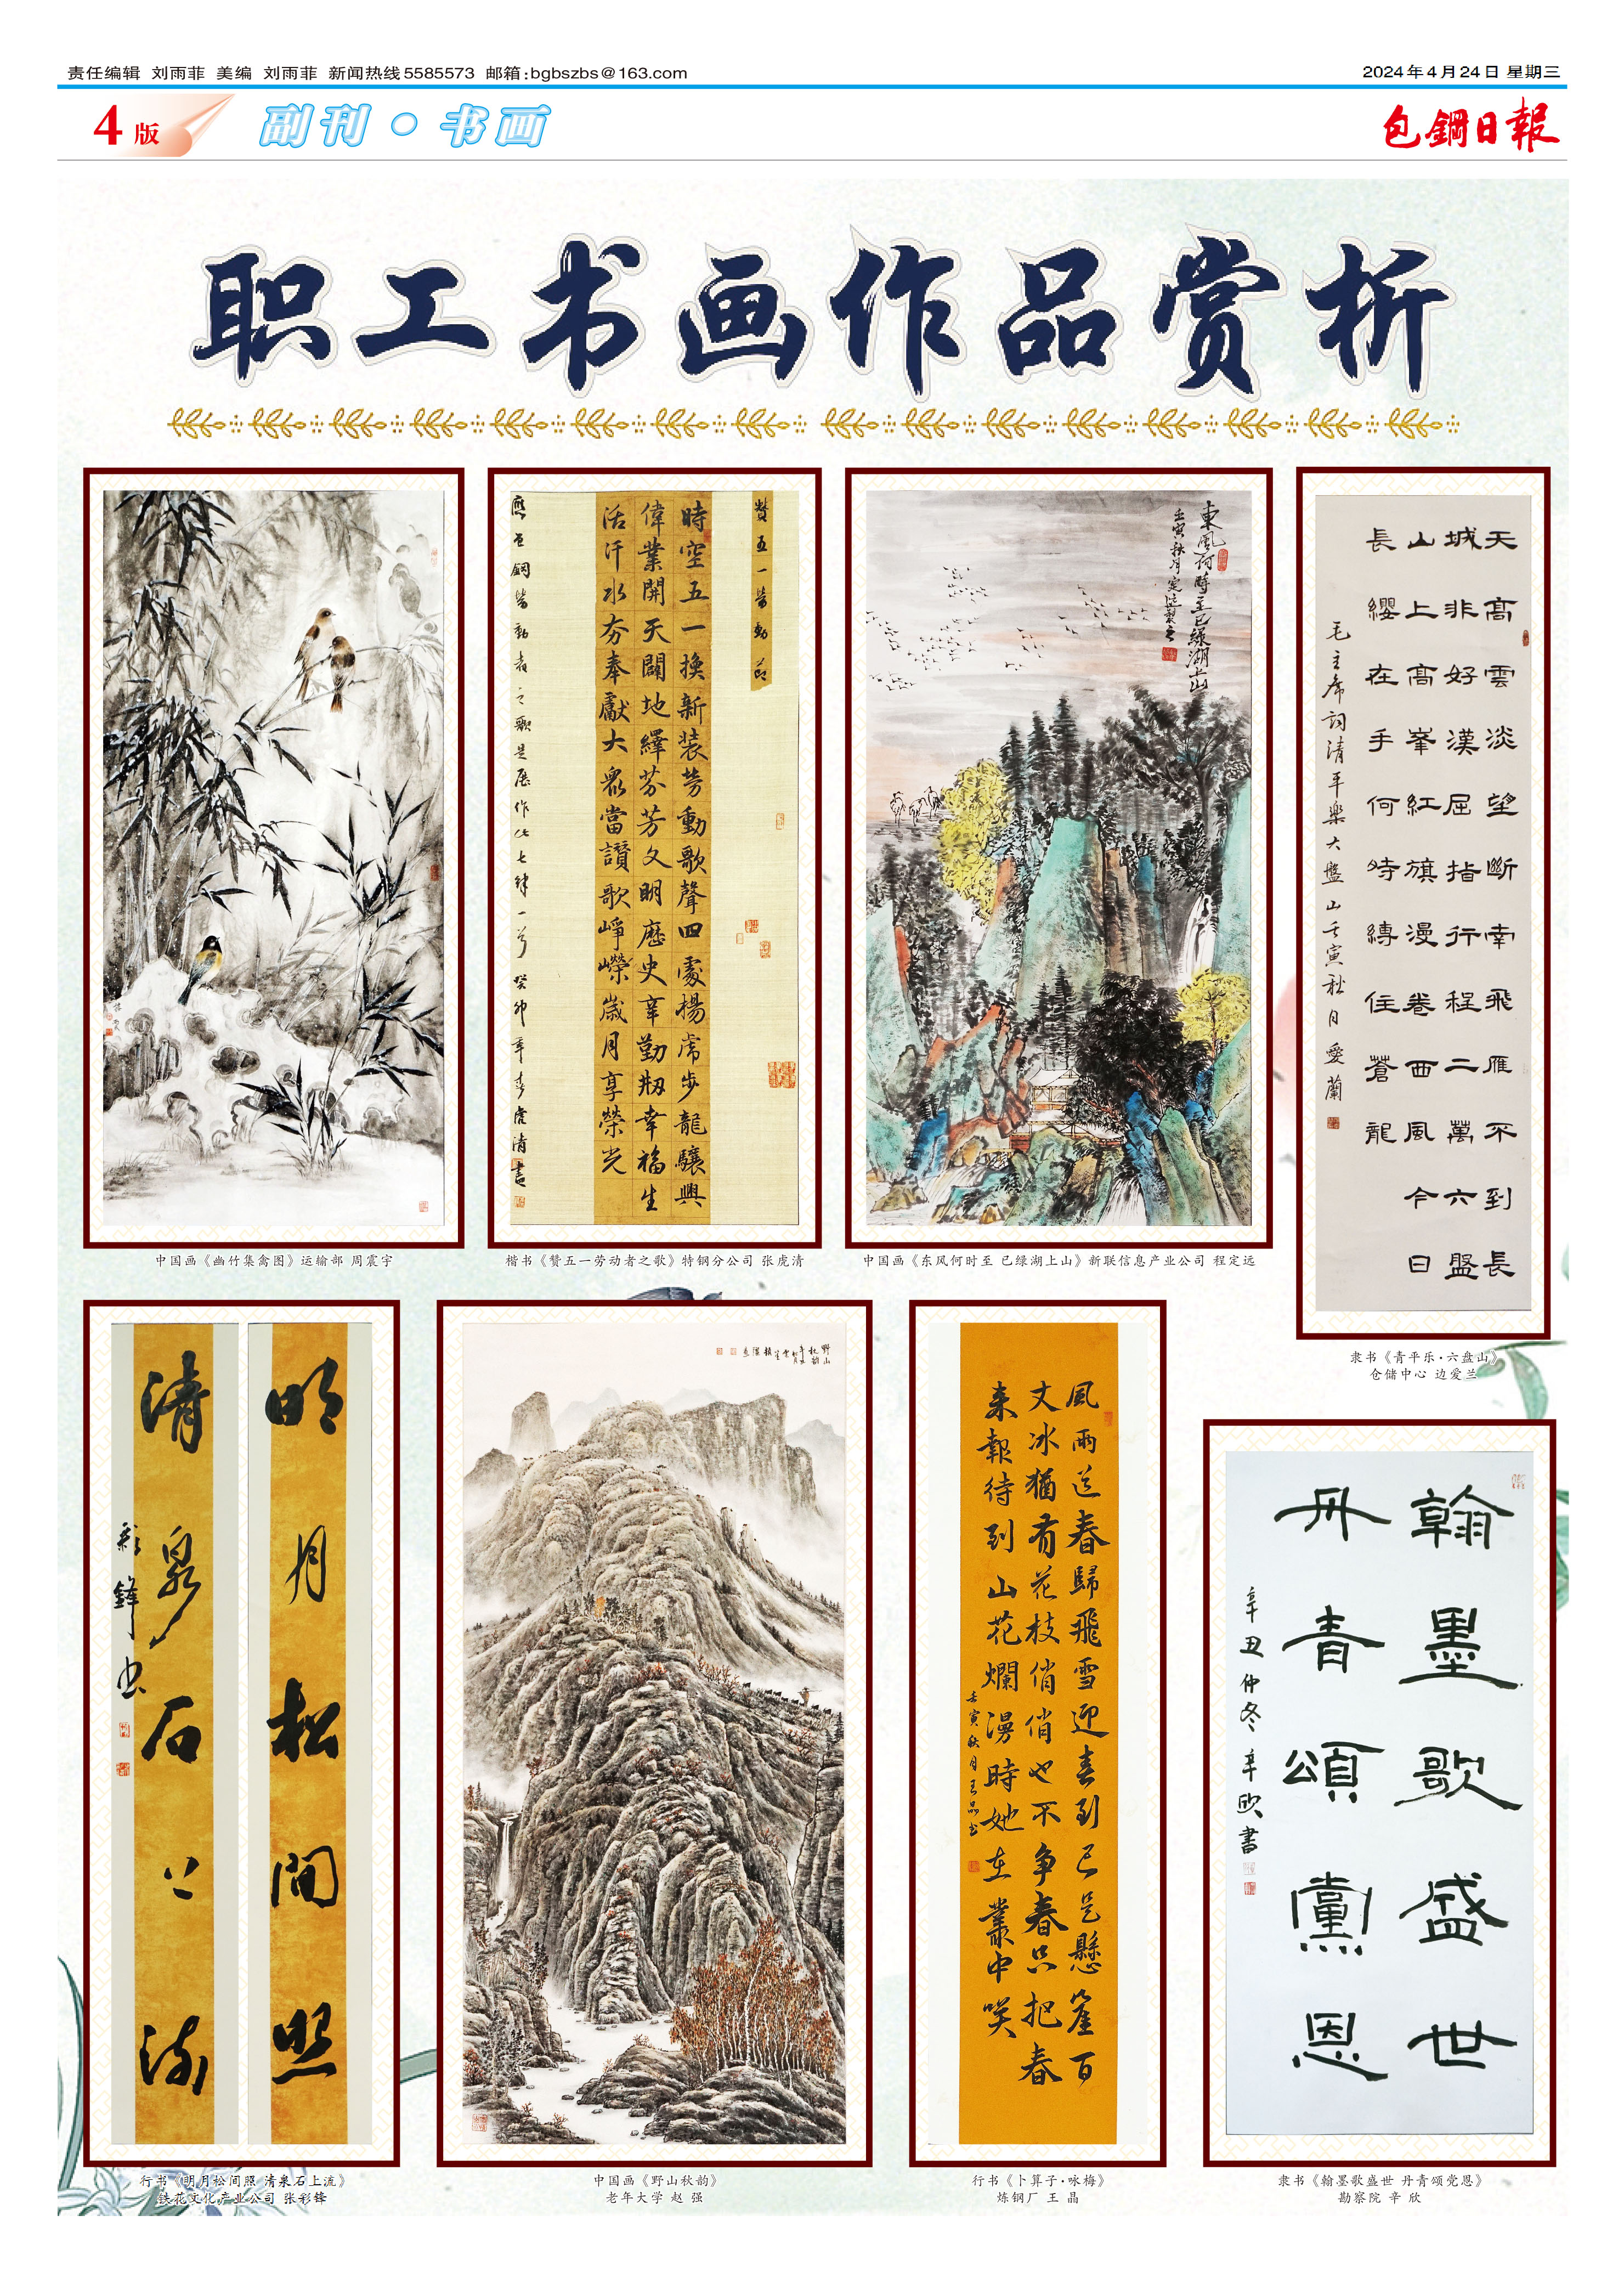 责任编辑 刘雨菲 美编 刘雨菲 新闻热线5585573 邮箱:bgbszbs@163.com
2024年4月24日 星期三
4版
副刊·书画
包鋼日報
职工书画作品赏析
中国画《幽竹集禽图》运输部 周震宇
贊五一勞動節
時空五一換新装勞動歌聲四處揚虎步龍驤興
偉業開天闢地繹芬芳文明歷史辛勤刱幸福生
活汗水夯奉獻大眾當讚歌崢嶸歲月享榮光
應包鋼勞動者之歌是展作此七律一首 癸卯年春虎清書
楷书《赞五一劳动者之歌》特钢分公司 张虎清
東風何時至已绿湖上山
壬寅秋月定远製
中国画《东风何时至 已绿湖上山》新联信息产业公司 程定远
天高雲淡望斷南飛雁不到長
城非好漢屈指行程二萬六盤
山上高峯紅旗漫卷西風今日
長纓在手何时縛住蒼龍
毛主席詞清平樂大盤山壬寅秋月愛蘭
隶书《青平乐·六盘山》
仓储中心 边爱兰
明月松間照
清泉石上流
彩鋒书
行书《明月松间照 清泉石上流》
铁花文化产业公司 张彩锋
野山秋韵
中国画《野山秋韵》
老年大学 赵 强
風雨送春歸飛雪迎春到已是懸崖百
丈冰猶有花枝俏俏也不争春只把春
来報待到山花爛漫時她在叢中咲
壬寅秋月王晶书
行书《卜算子·咏梅》
炼钢厂 王 晶
翰墨歌盛世
丹青頌黨恩
辛丑仲冬 辛欣書
隶书《翰墨歌盛世 丹青颂党恩》
勘察院 辛 欣